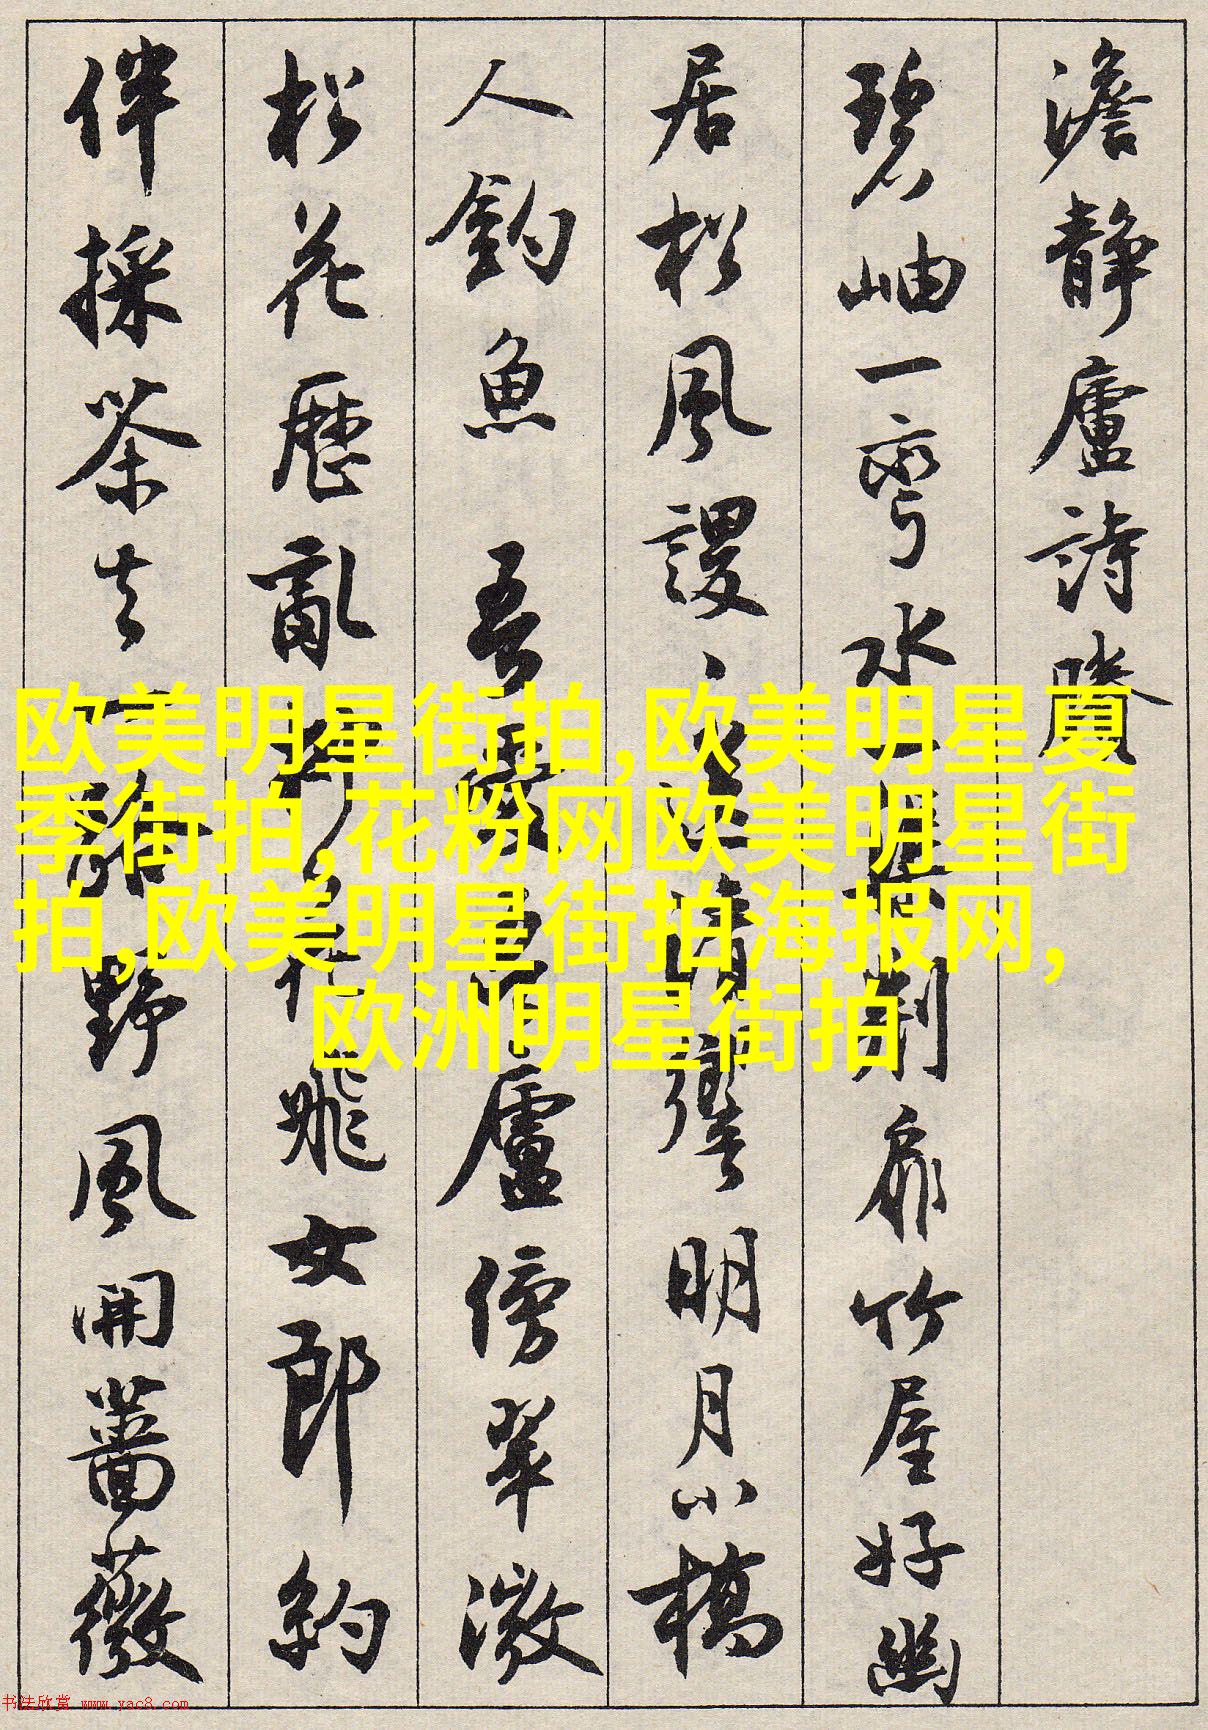 澹静廬詩賸
碧岫一彎水荆扉竹屋好幽
居松風謖清響明月小橋
人釣魚 吾愛吾廬傍翠微
松花歷亂飛女郎約
伴採茶去一路野風開薔薇
欧美明星街拍,欧美明星夏
季街拍,花粉网欧美明星街
拍,欧美明星街拍海报网,
欧洲明星街拍
书法欣赏 www.yac8.com